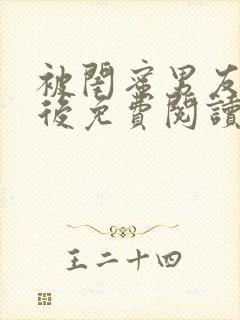 被閨蜜男友
後免費閱讀
王二十四